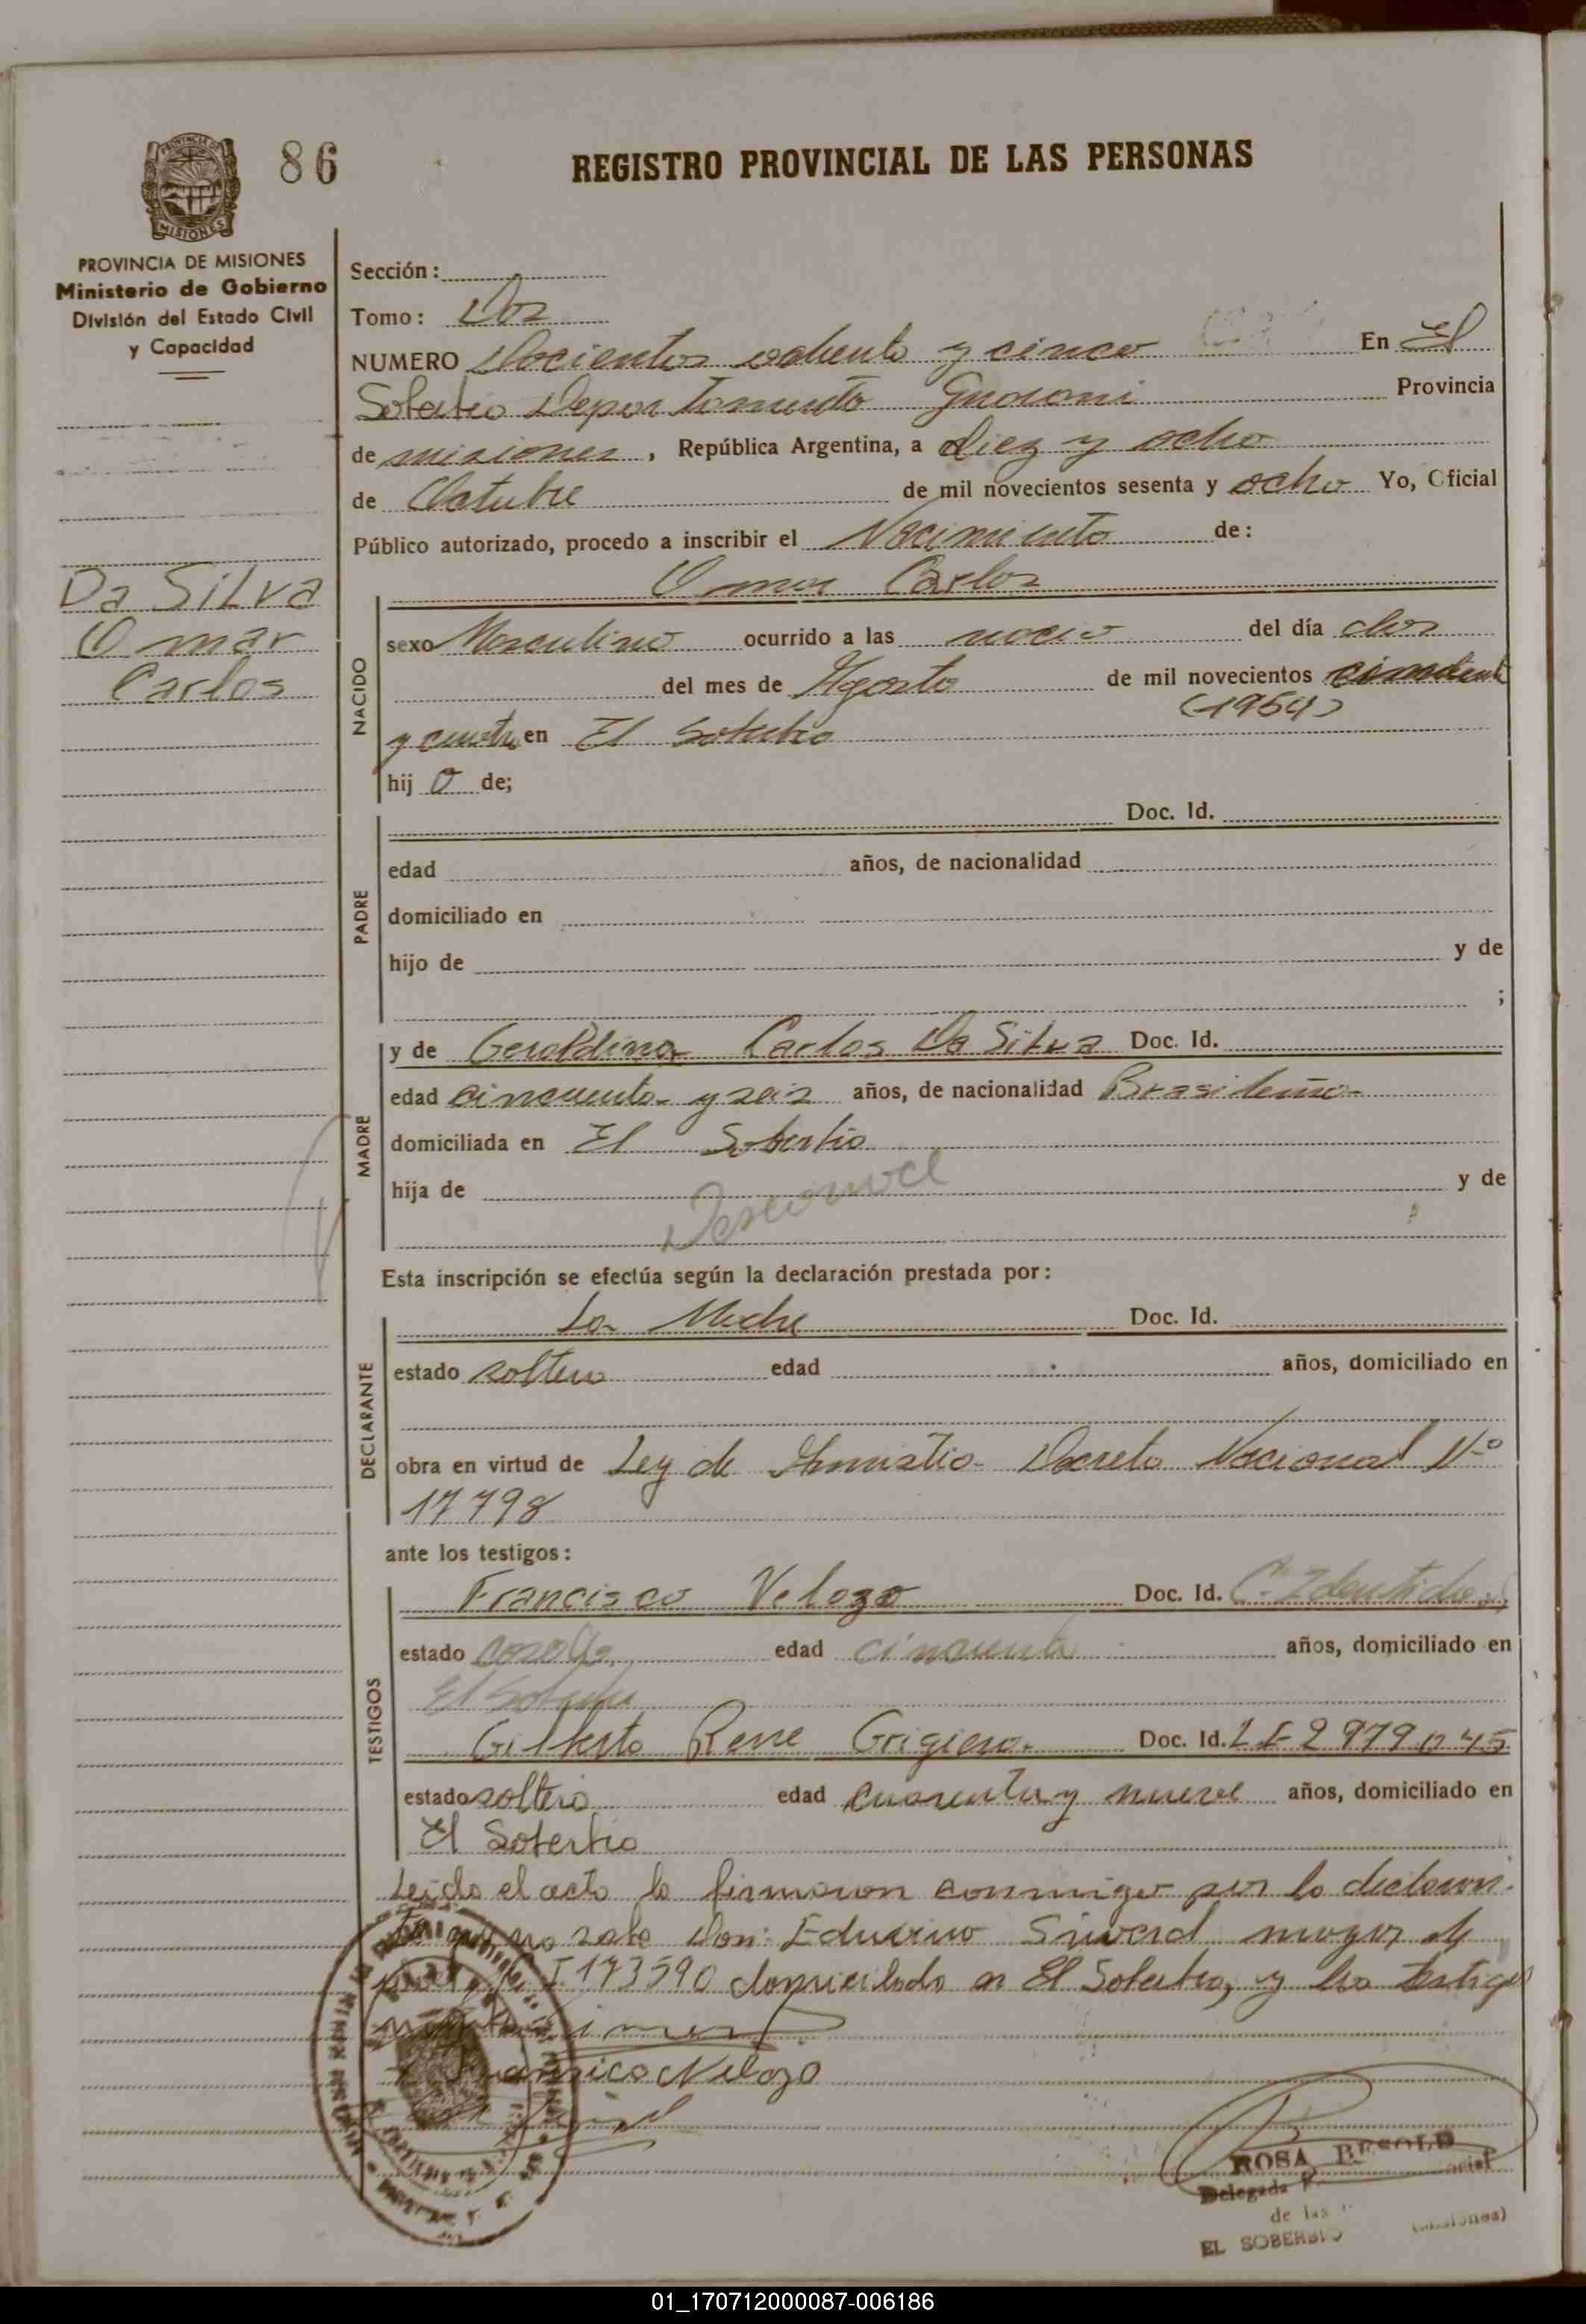 86
REGISTRO PROVINCIAL DE LAS PERSONAS
PROVINCIA DE MISIONES
MISIONES
PROVINCIA DE MISIONES
Ministerio de Gobierno
División del Estado Civil
y Capacidad
Da Silva
Omar
Carlos
Sección:
Tomo: Dos
NUMERO Docientos ochenta y cinco En El
Soberbio Departamento Guarani Provincia
de misiones, República Argentina, a diez y ocho
de Octubre de mil novecientos sesenta y ocho Yo, Oficial
Público autorizado, procedo a inscribir el Nacimiento de:
Omar Carlos
NACIDO
sexo Masculino ocurrido a las del día dos
del mes de Agosto de mil novecientos
y cuatro en El Soberbio
hij o de;
PADRE
Doc. Id.
edad años, de nacionalidad
domiciliado en
hijo de y de
;
MADRE
y de Geraldina Carlos Da Silva Doc. Id.
edad cincuenta y seis años, de nacionalidad Brasileña
domiciliada en El Soberbio
hija de Desconoce y de
Esta inscripción se efectúa según la declaración prestada por:
DECLARANTE
La Madre Doc. Id.
estado soltera edad años, domiciliado en
obra en virtud de Ley de Amnistia Decreto Nacional Nº
17798
ante los testigos:
TESTIGOS
Francisco Velozo Doc. Id. C. Identidad
estado casado edad cincuenta años, domiciliado en
El Soberbio
Gilberto Rene Doc. Id. 2979045
estado soltero edad cuarenta y nueve años, domiciliado en
El Soberbio
Leida el acta la firmaron conmigo por la declaran-
Don: mayor de
I 173590 domiciliado en El Soberbio, y los testigos
Velozo
ROSA
Delegada
de las
EL SOBERBIO (Misiones)
01_170712000087-006186